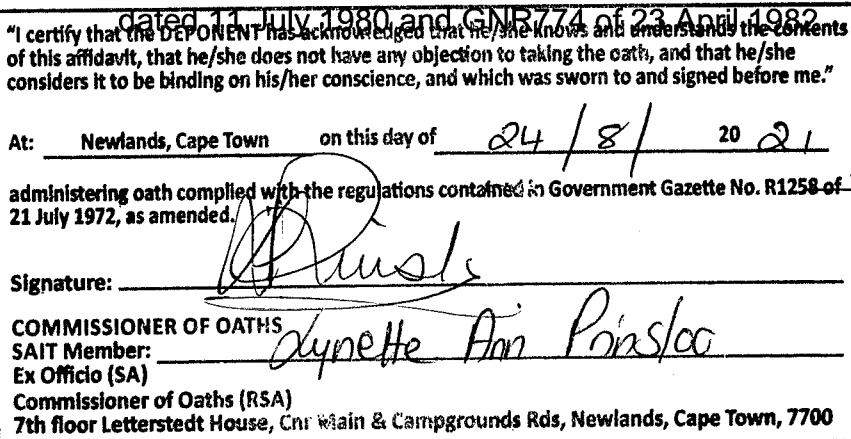 dated 11 July 1980 and GNR774 of 23 April 1982
"I certify that the DEPONENT has acknowledged that he/she knows and understands the contents
of this affidavit, that he/she does not have any objection to taking the oath, and that he/she
considers it to be binding on his/her conscience, and which was sworn to and signed before me."
At: Newlands, Cape Town on this day of 24/8/ 20 21
administering oath complied with the regulations contained in Government Gazette No. R1258 of
21 July 1972, as amended.
Signature: Prinsloo
COMMISSIONER OF OATHS
SAIT Member: Lynette Ann Prinsloo
Ex Officio (SA)
Commissioner of Oaths (RSA)
7th floor Letterstedt House, Cnr Main & Campgrounds Rds, Newlands, Cape Town, 7700